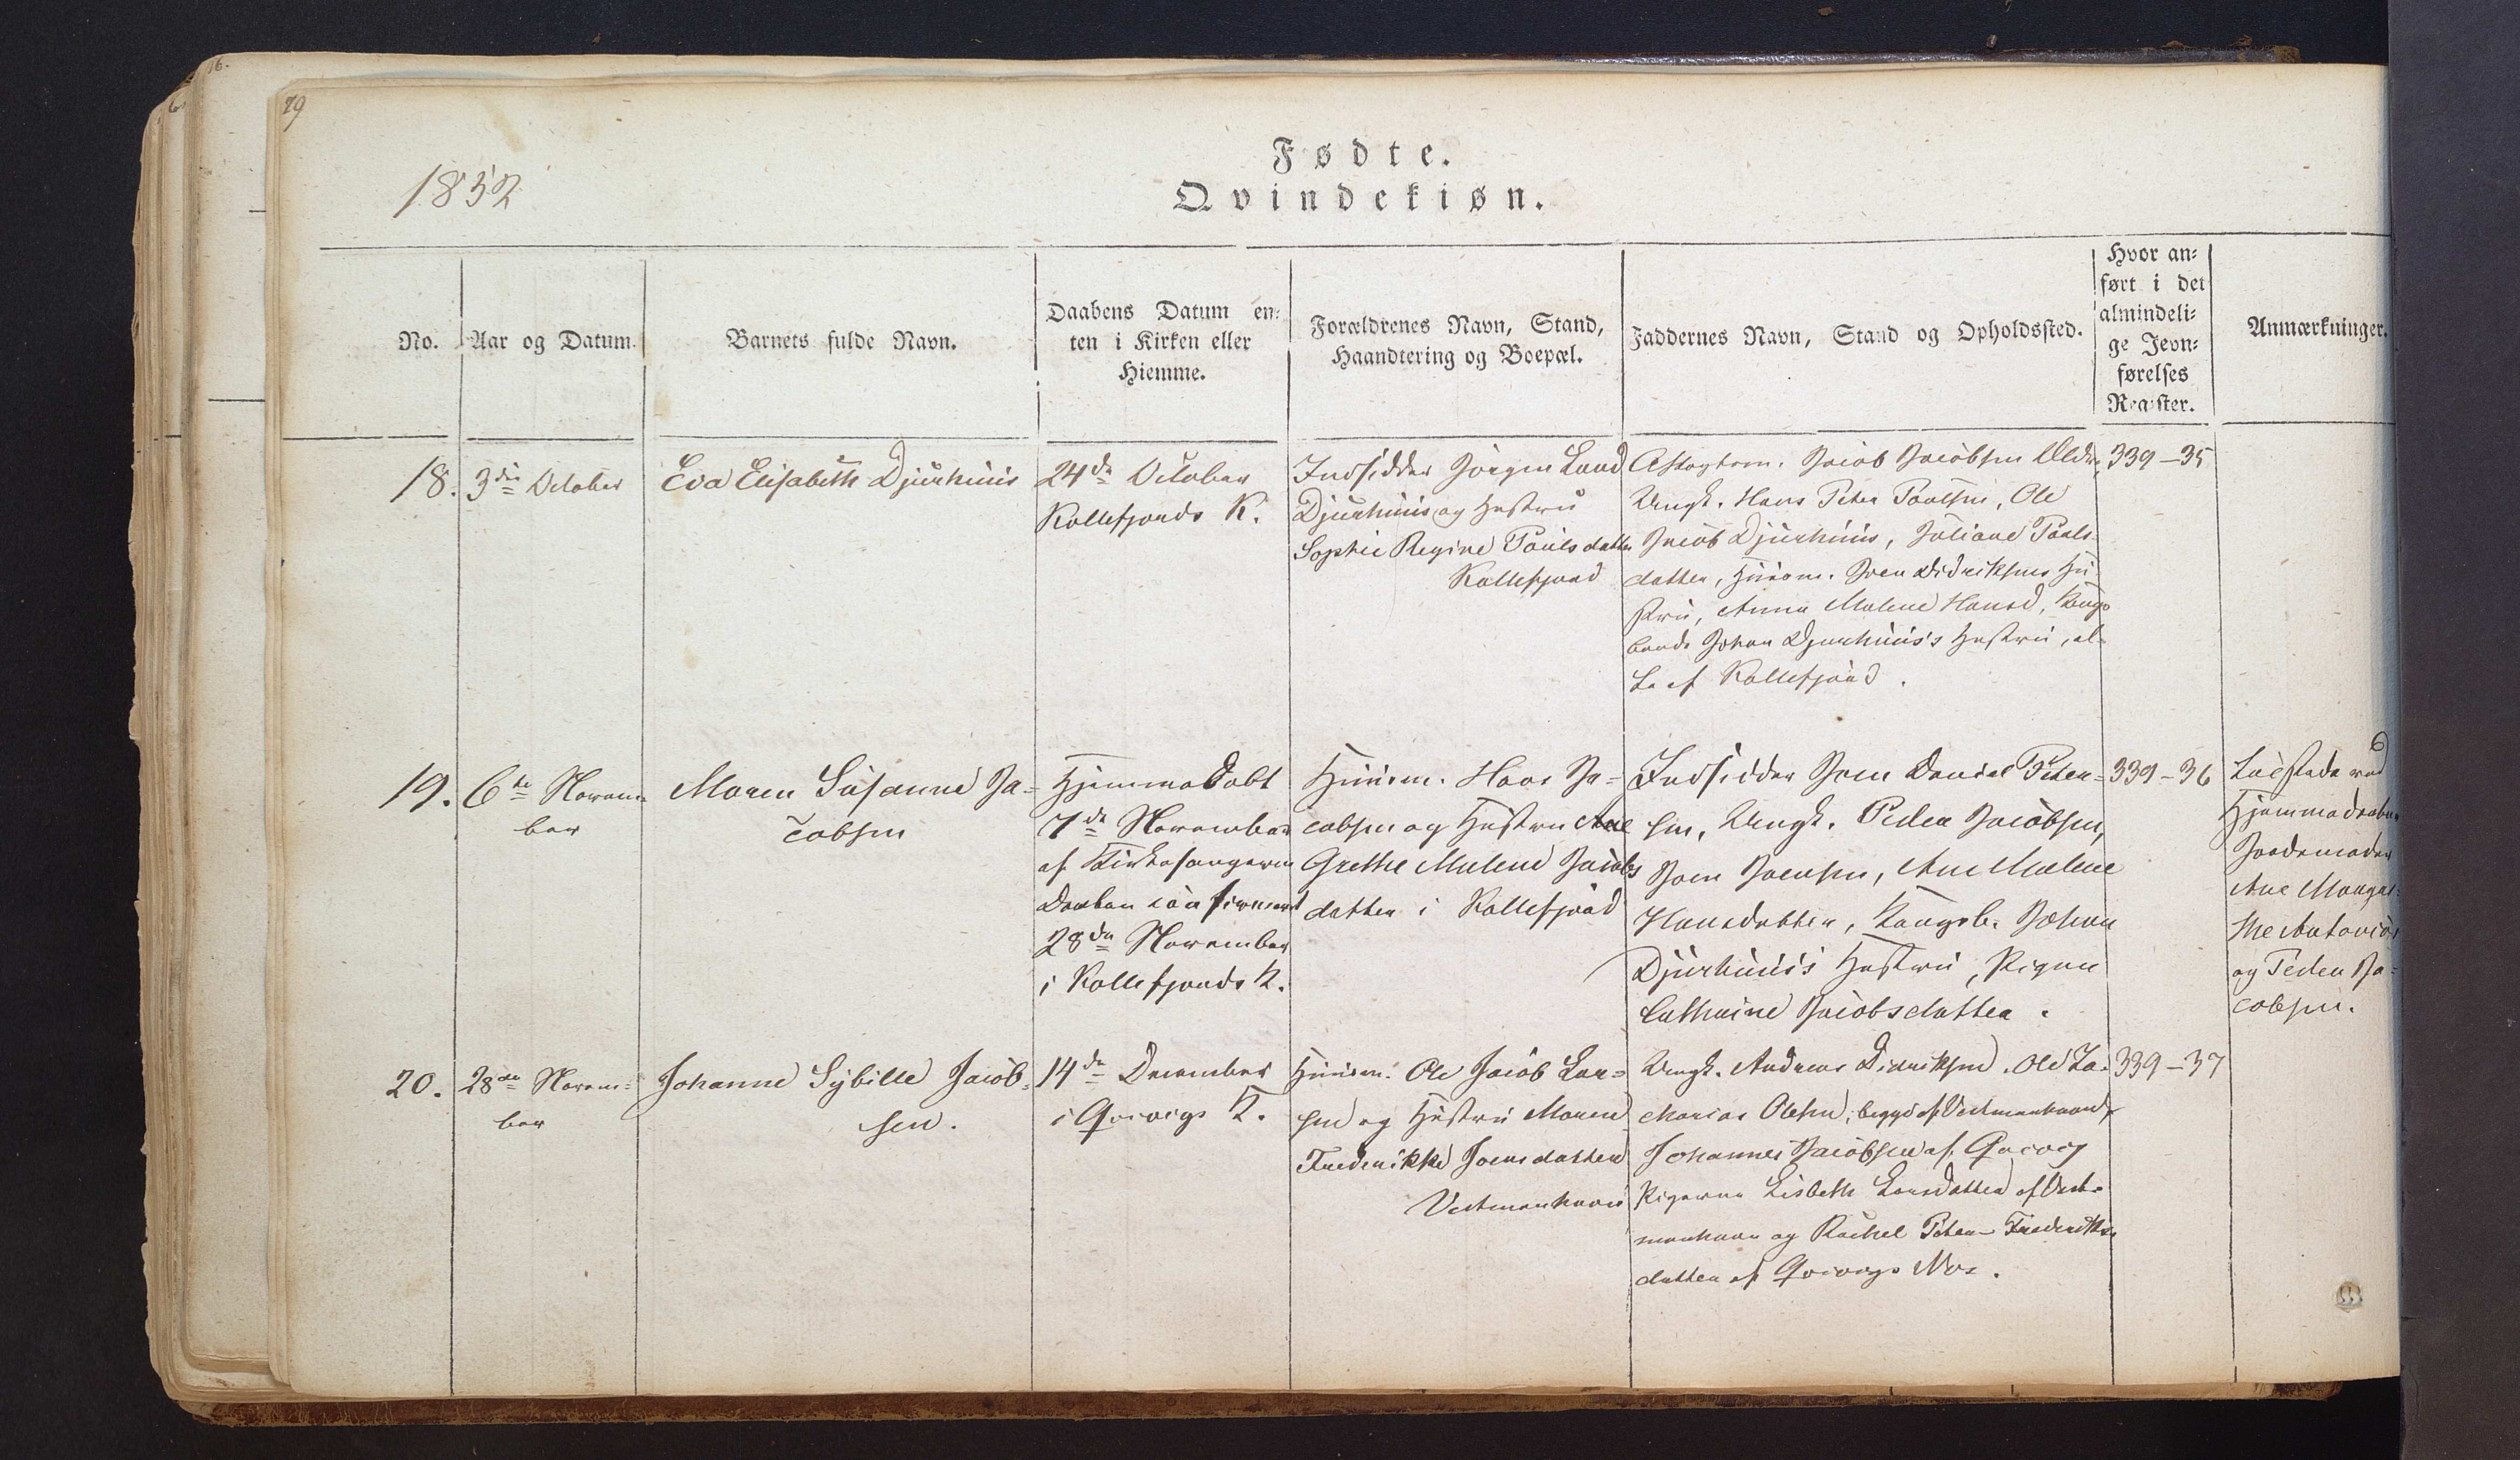 79
1852
Fødte.
Qvindekiøn.
No.
Aar og Datum.
Barnets fulde Navn.
Daabens Datum en-
ten i Kirken eller
Hiemme.
Forældrenes Navn, Stand,
Haandtering og Boepæl.
Faddernes Navn, Stand og Opholdssted.
Hvor an-
ført i det
almindeli-
ge Jevn-
førelses
Register.
Anmærkninger.
18.
3die October
Eva Elisabeth Djurhuus
24de October
Kollefjords K.
Indsidder Jørgen Lund
Djurhuus og Hustru
Sophie Regine Poulsdatter
Kollefjord
Jacob Jacobsen
Ungk. Hans Peter Poulsen, Ole
Jacob Djurhuus, Juliane Pouls-
datter, Huusm. Joen Didriksens Hu-
stru, Anna Malene Hansd, Kongs-
bonde Johan Djurhuus's Hustru, al-
le af Kollefjord.
339-35
19.
6te Novem-
ber
Maren Susanne Ja-
cobsen
Hjemmedøbt
7de November
af Kirkesangeren
Daaben confirmeret
28de November
i Kollefjords K.
Huusm. Hans Ja-
cobsen og Hustru Ane
Grethe Malene Jacobs
datter i Kollefjord
Indsidder Joen Daniel Peter-
sen, Ungk. Peder Jacobsen,
Joen Joensen, Ane Malene
Hansdatter, Kongsb. Johan
Djurhuus's Hustru, Pigen
Cathrine Jacobsdatter.
339-36
ved
Hjemmedaaben
Jordemoder
Ane Margre-
the
og Peder Ja-
cobsen.
20.
28de Novem-
ber
Johanne Sybille Jacob-
sen.
14de December
i Qvivigs K.
Huusm. Ole Jacob Lar-
sen og Hustru Maren
Frederikke Joensdatter
Vestmanhavn
Ungk. Andreas Didriksen. Ole Za-
charias Olesen, begge af Vestmanhavn,
Johannes Jacobsen af Qvivig
Pigerne Lisbeth Larsdatter af Vest-
manhavn og Rachel Peter-Frederiks-
datter af Qvivigs
339-37